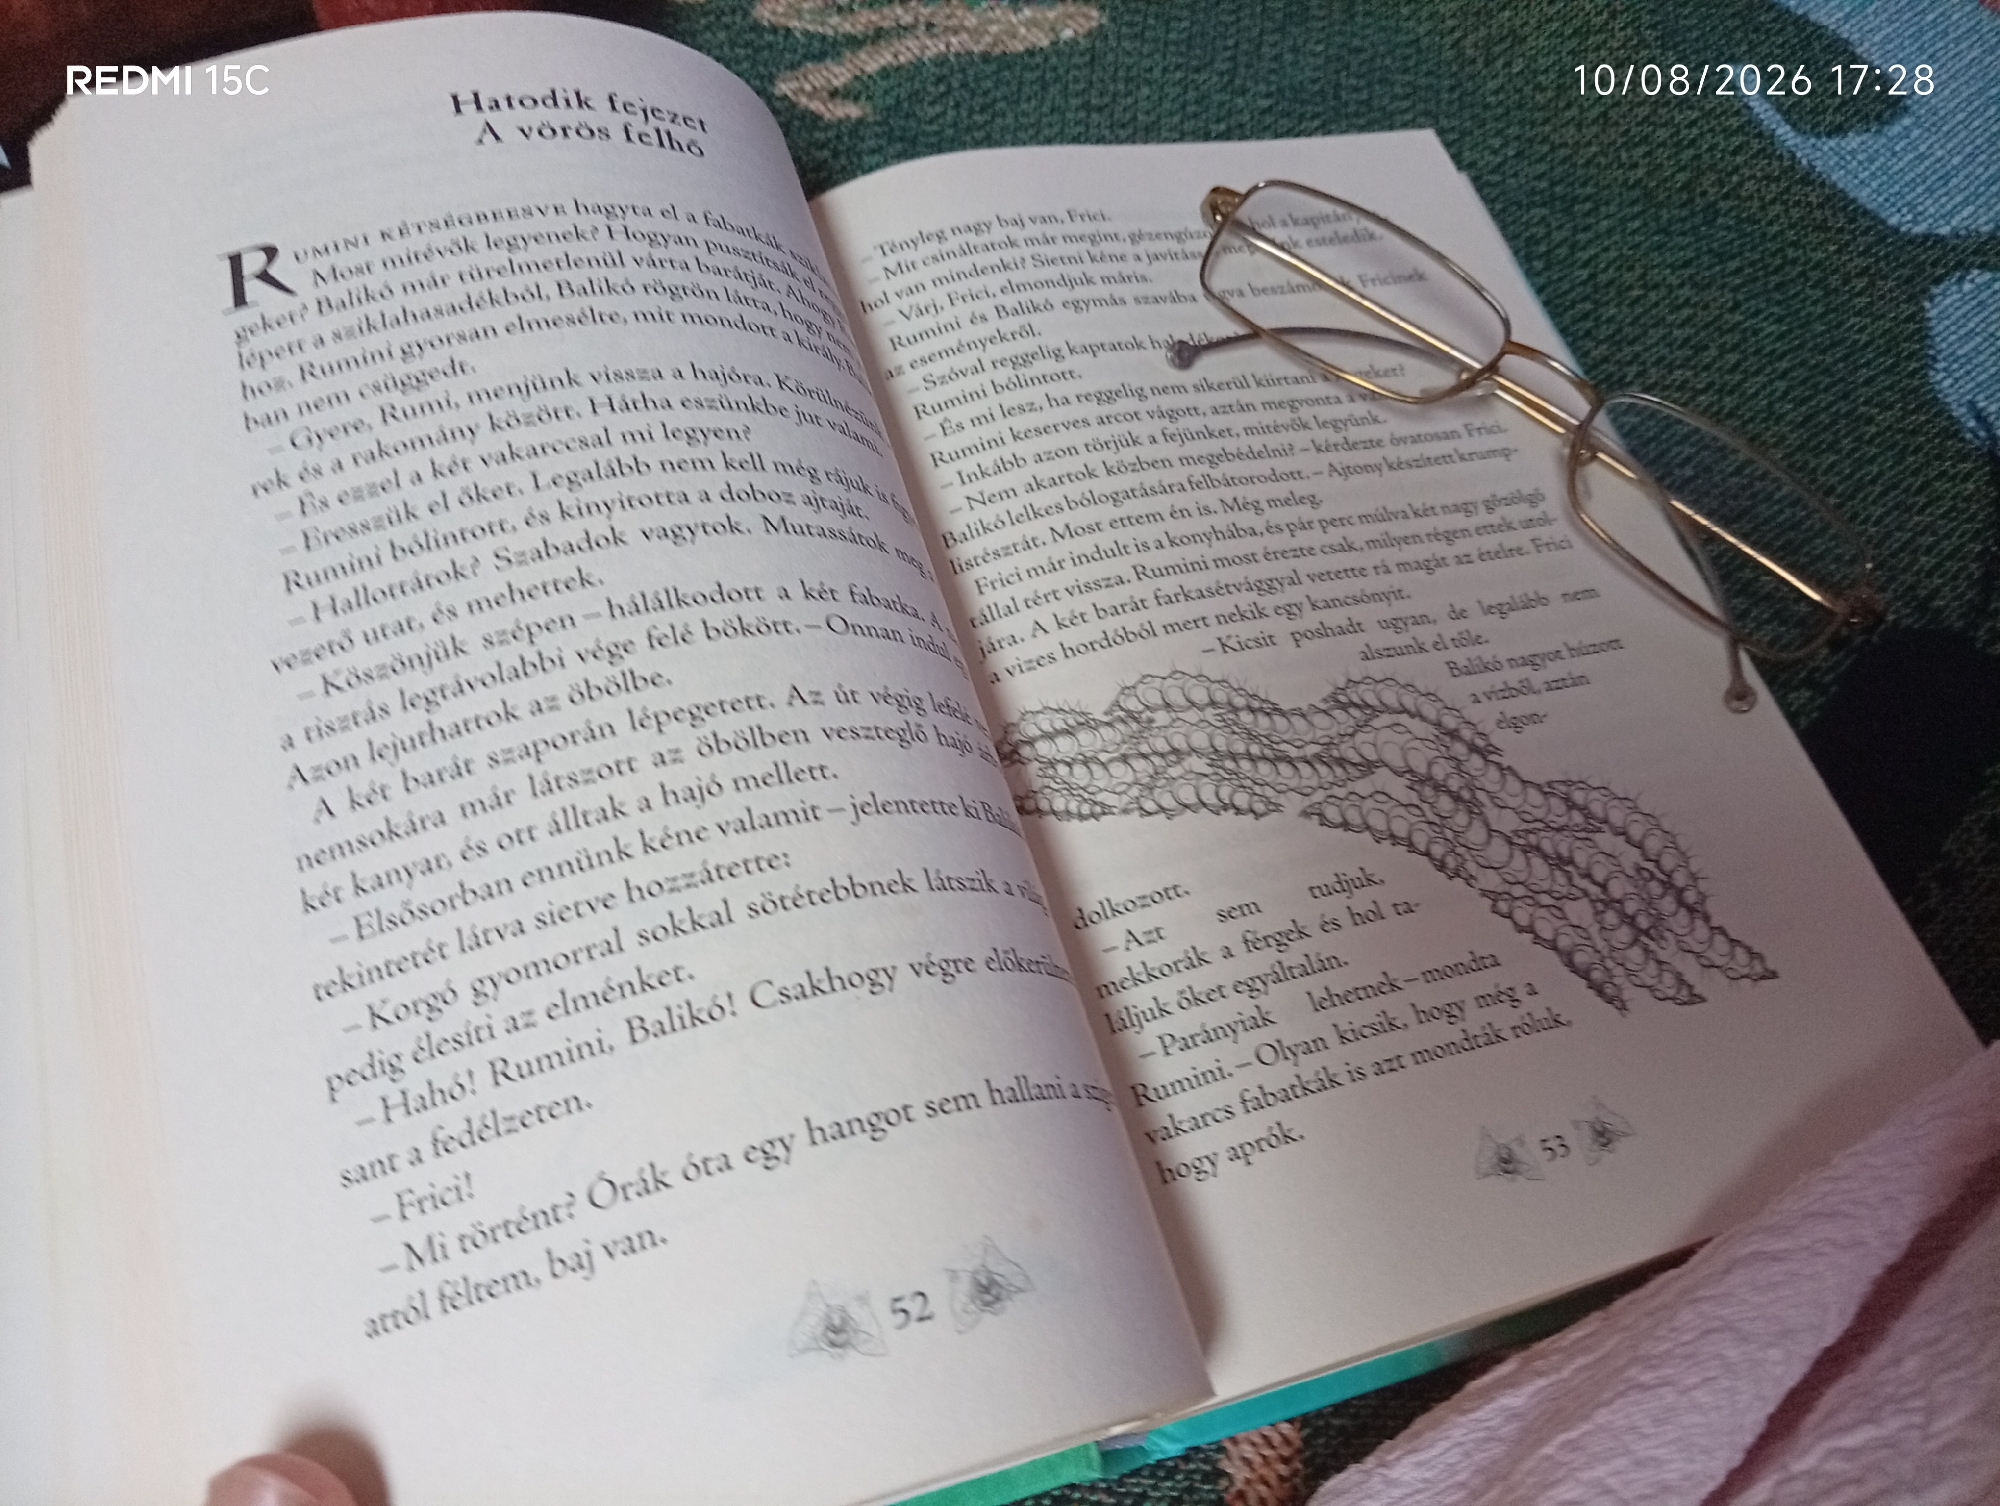 REDMI 15C
10/08/2026 17:28
Hatodik fejezet
A vörös felhő
RUMINI KÉTSÉGBEESVE hagyta el a fabatkák
Most mitévők legyenek? Hogyan pusztítsák el
geket? Balikó már türelmetlenül várta barátját. Ahogy
lépett a sziklahasadékból, Balikó rögtön látta, hogy nem
hoz. Rumini gyorsan elmesélte, mit mondott a király.
ban nem csüggedt.
– Gyere, Rumi, menjünk vissza a hajóra. Körülnézünk
rek és a rakomány között. Hátha eszünkbe jut valami.
– És ezzel a két vakarccsal mi legyen?
– Eresszük el őket. Legalább nem kell még rájuk is
Rumini bólintott, és kinyitotta a doboz ajtaját.
– Hallottátok? Szabadok vagytok. Mutassátok meg
vezető utat, és mehettek.
– Köszönjük szépen – hálálkodott a két fabatka. A
a tisztás legtávolabbi vége felé bökött. – Onnan indul
Azon lejuthattok az öbölbe.
A két barát szaporán lépegetett. Az út végig lefelé
nemsokára már látszott az öbölben veszteglő hajó
két kanyar, és ott álltak a hajó mellett.
– Elsősorban ennünk kéne valamit – jelentette ki
tekintetét látva sietve hozzátette:
– Korgó gyomorral sokkal sötétebbnek látszik a
pedig élesíti az elménket.
– Hahó! Rumini, Balikó! Csakhogy végre
sant a fedélzeten.
– Frici!
– Mi történt? Órák óta egy hangot sem hallani a
attól féltem, baj van.
52
– Tényleg nagy baj van, Frici.
– Mit csináltatok már megint, hol a kapitány
hol van mindenki? Sietni kéne a esteledik.
– Várj, Frici, elmondjuk máris.
Rumini és Balikó egymás szavába Fricinek
az eseményekről.
– Szóval reggelig kaptatok
Rumini bólintott.
– És mi lesz, ha reggelig nem sikerül kiirtani a
Rumini keserves arcot vágott, aztán megvonta a
– Inkább azon törjük a fejünket, mitévők legyünk.
– Nem akartok közben megebédelni? – kérdezte óvatosan Frici.
Balikó lelkes bólogatására felbátorodott. – Ajtony készített krump-
listésztát. Most ettem én is. Még meleg.
Frici már indult is a konyhába, és pár perc múlva két nagy gőzölgő
tállal tért vissza. Rumini most érezte csak, milyen régen ettek utol-
jára. A két barát farkasétvággyal vetette rá magát az ételre. Frici
a vizes hordóból mert nekik egy kancsónyit.
– Kicsit poshadt ugyan, de legalább nem
alszunk el tőle.
Balikó nagyot húzott
a vízből, aztán
elgon-
dolkozott.
– Azt sem tudjuk,
mekkorák a férgek és hol ta-
láljuk őket egyáltalán.
– Parányiak lehetnek – mondta
Rumini. – Olyan kicsik, hogy még a
vakarcs fabatkák is azt mondták róluk,
hogy aprók.
53